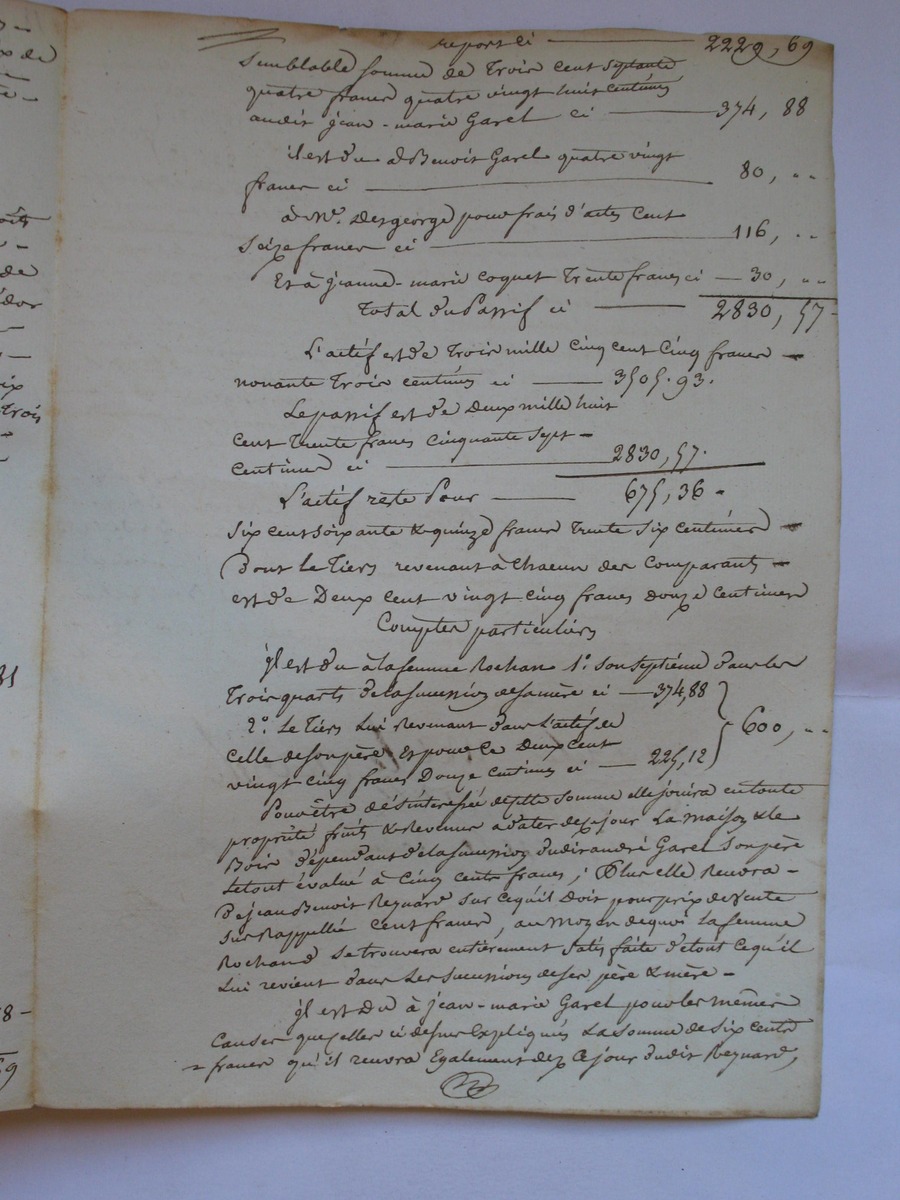 report ci 2229, 69
Semblable somme de Trois cent septante
quatre francs quatre vingt huit centimes
audit jean-marie Garel ci 374, 88
il est du à Benoit Garel quatre vingt
francs ci 80, ..
à Me. Desgeorge pour frais d'actes cent
seize francs ci 116, ..
Et à jeanne-marie coquet Trente francs ci 30, ..
Total du Passif ci 2830, 57
L'actif est de Trois mille cinq cent cinq francs
nonante Trois centimes ci 3505. 93.
Le passif est de Deux mille huit
cent Trente francs cinquante sept
centimes ci 2830, 57.
L'actif reste Pour 675, 36
six cent soixante & quinze francs trente six centimes
Dont le Tiers revenant à chacun des comparants
est de Deux cent vingt cinq francs douze centimes
Comptes particuliers
il est du à la femme Rochand 1o. son septieme dans les
Trois quarts de la succession de sa mère ci 374,88
2o. Le Tiers Lui Revenant dans L'actif de 600, ..
celle de son père Est pour ce Deux cent
vingt cinq francs Douze centimes ci 225,12
Pour être désinteressée de cette somme elle jouira en toute
propriété fruits & Revenus a dater de ce jour La maison & le
Bois dépendant de la succession dudit andré Garel Son père
Letout évalué à cinq cents francs; Plus elle Recevra
De jean Benoit Reynard sur ce qu'il doit pour prix de vente
sus Rappellé cent francs, au moyen de quoi La femme
Rochand se trouvera entièrement satisfaite de tout ce qu'il
Lui revient dans Les successions de ses père & mère
il est du à jean-marie Garel pour les mêmes
causes que celles ci dessus Expliquées La somme de six cents
francs qu'il recevra Egalement dez ce jour dudit Reynard,